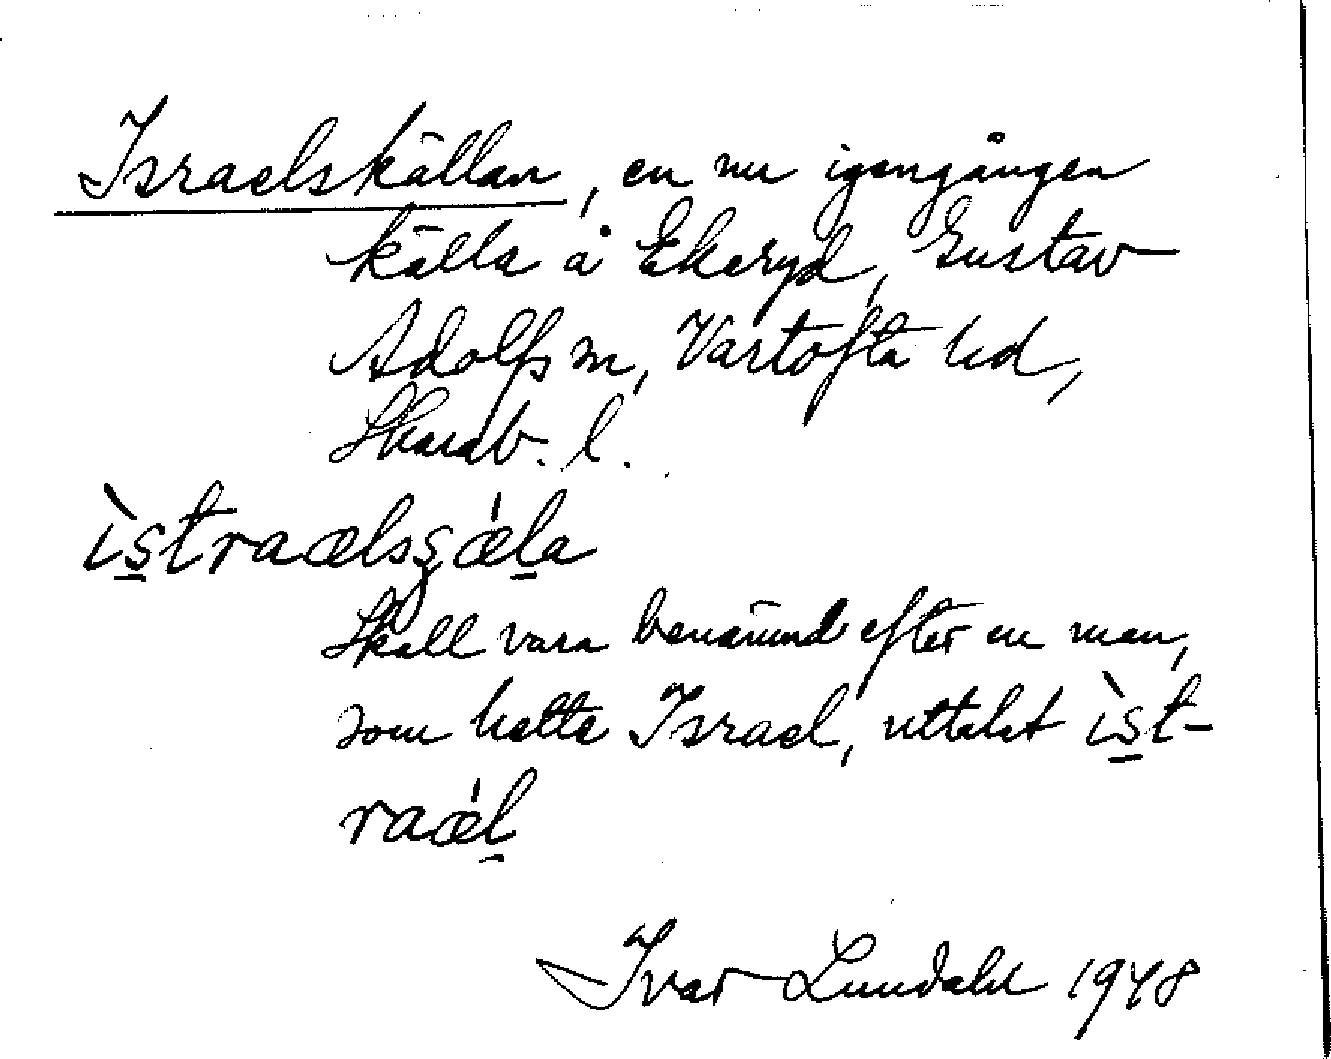 Israelskällan, en nu igengången
källa å Ekeryd, Gustav
Adolfs sn, Vartofta hd,
Skarab. l.
ìs̲traælsʂǽl̲a
Skall vara benämnd efter en man,
som hette Israel, uttalat ìs̲t-
raǽl̲
Ivar Lundahl 1948